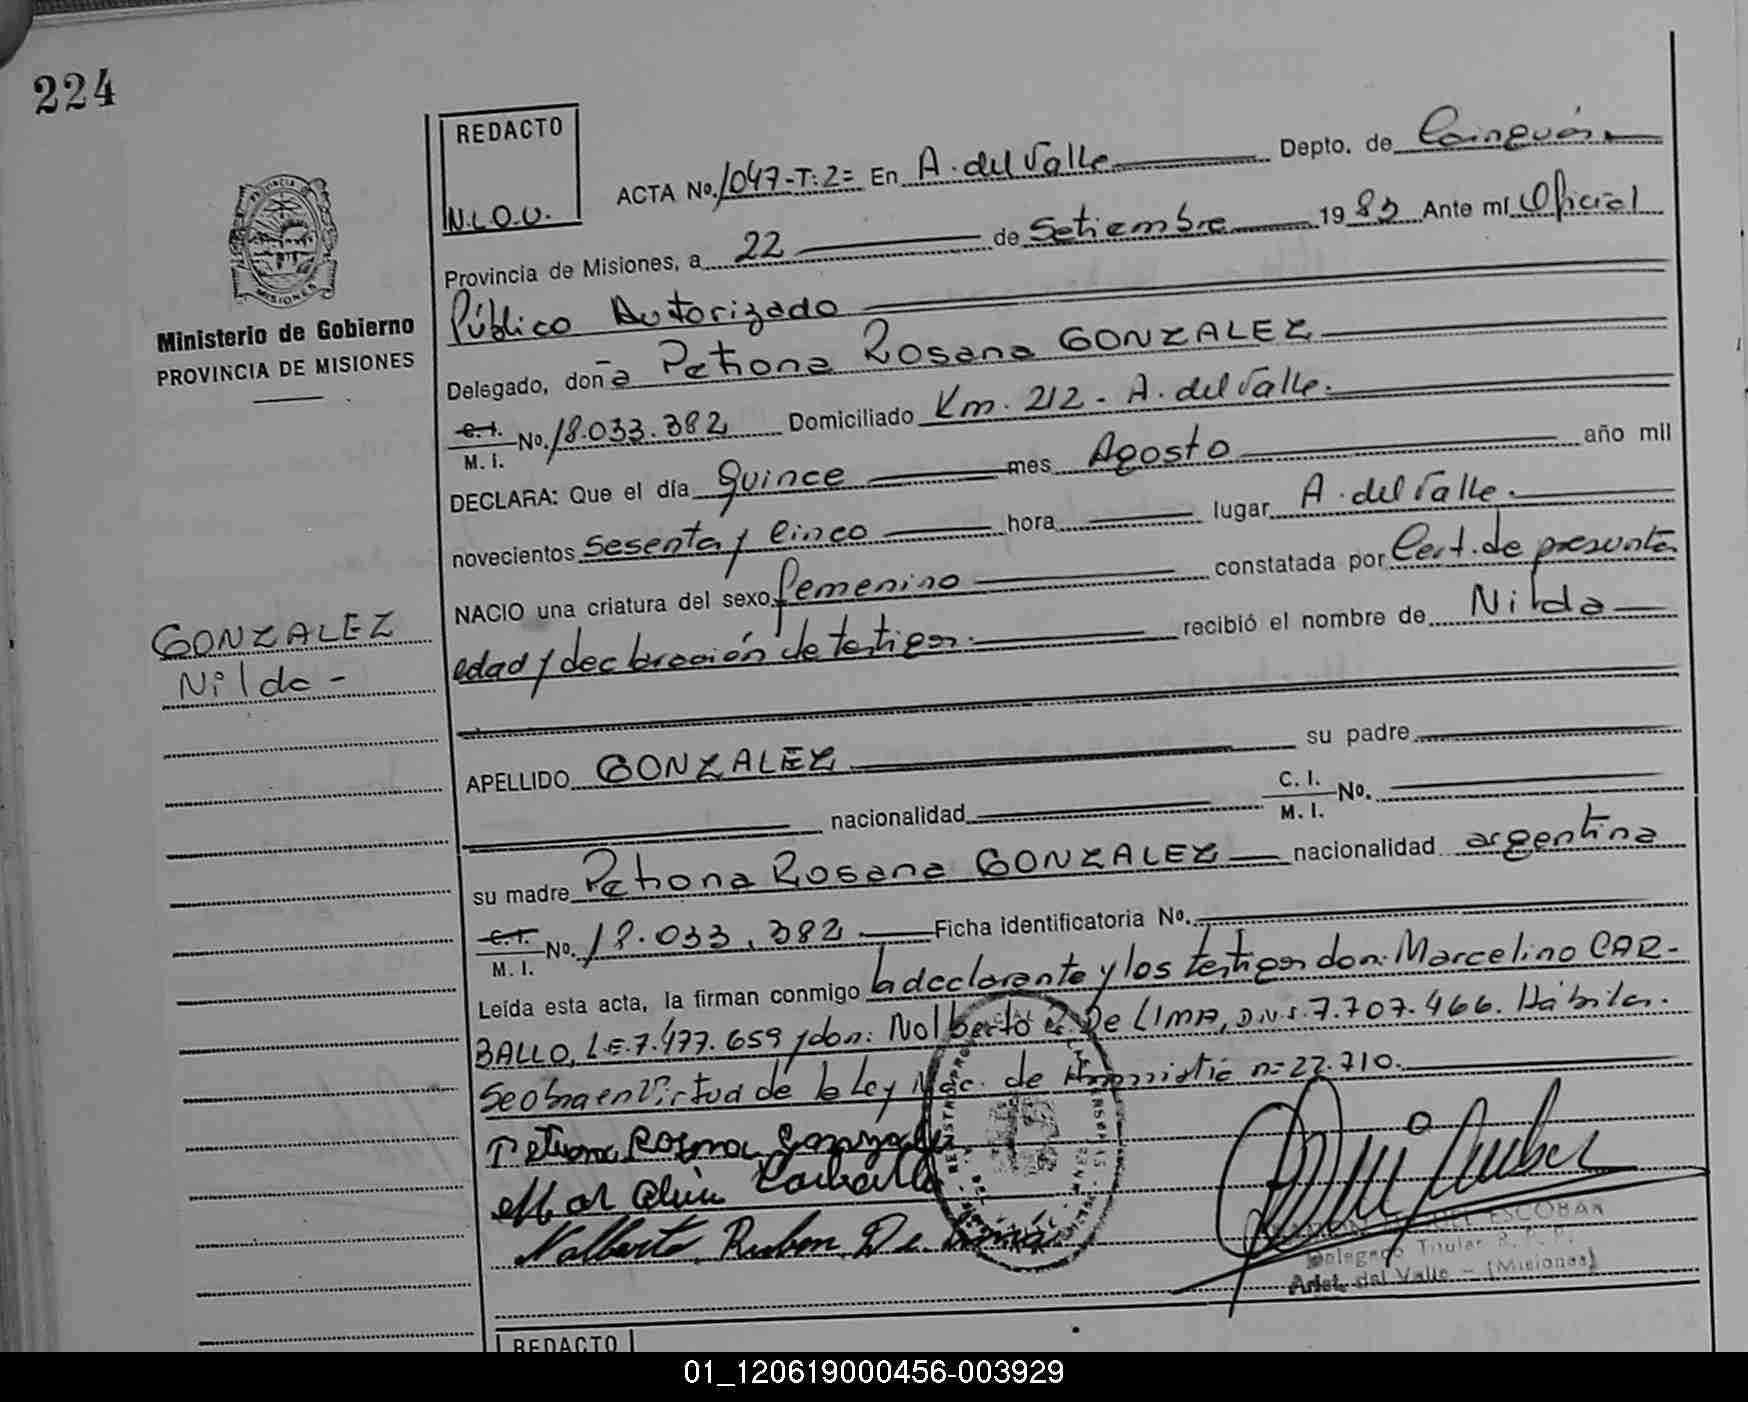 224
REDACTO
N.L.O.U.
PROVINCIA DE
MISIONES
Ministerio de Gobierno
PROVINCIA DE MISIONES
ACTA No. 1047-T:2= En A. del Valle Depto. de Cainguás
Provincia de Misiones, a 22 de Setiembre 1983 Ante mí Oficial
Público Autorizado
Delegado, don a Petrona Rosana GONZALEZ
C.I. M.I. No. 18.033.382 Domiciliado Km. 212 - A. del Valle.
DECLARA: Que el día quince mes Agosto año mil
novecientos sesenta y cinco hora lugar A. del Valle.
NACIO una criatura del sexo femenino constatada por Cert. de presunta
edad y declaración de testigos. recibió el nombre de Nilda
GONZALEZ
Nilda -
APELLIDO GONZALEZ su padre
nacionalidad C. I. M. I. No.
su madre Petrona Rosana GONZALEZ nacionalidad argentina
C.I. M. I. No. 18.033.382 Ficha identificatoria No.
Leída esta acta, la firman conmigo la declarante y los testigos don: Marcelino CAR-
BALLO, L.E. 7.477.659 y don: Nolberto R. De LIMA, D.N.I. 7.707.466. Hábiles.
Se obra en Virtud de la Ley Nac. de Amnistía nº 22.710.
Petrona Rosana Gonzalez
Marcelino Carballo
Nolberto Ruben De Lima
ESCOBAR
Delegado Titular R. P. P.
Arist. del Valle - (Misiones)
REDACTO
01_120619000456-003929